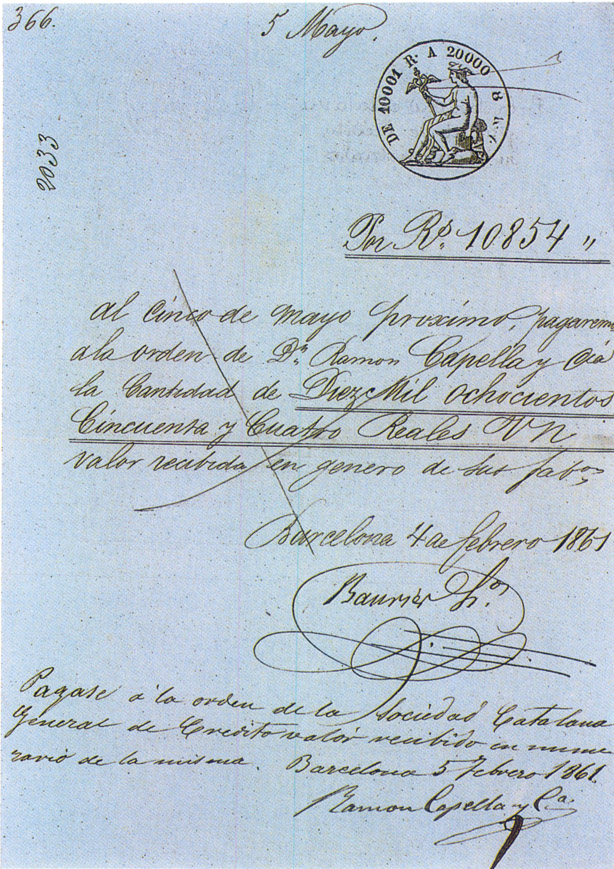 366.
5 Mayo.
DE 10001 R.ˢ A 20000 8 R.ˢ
2033
Por R.ˢ 10854 "
Al Cinco de Mayo proximo, pagaremos
a la orden de D.ⁿ Ramon Capella y Cia
la Cantidad de Diez Mil Ochocientos
Cincuenta y Cuatro Reales VN
valor recibida en genero de sus fab.ᵒˢ
Barcelona 4 de febrero 1861
Baurier h.ᵒˢ
Pagase à la orden de la Sociedad Catalana
General de Credito valor recibido en nume
rario de la misma. Barcelona 5 Febrero 1861.
Ramon Capella y C.ᵃ